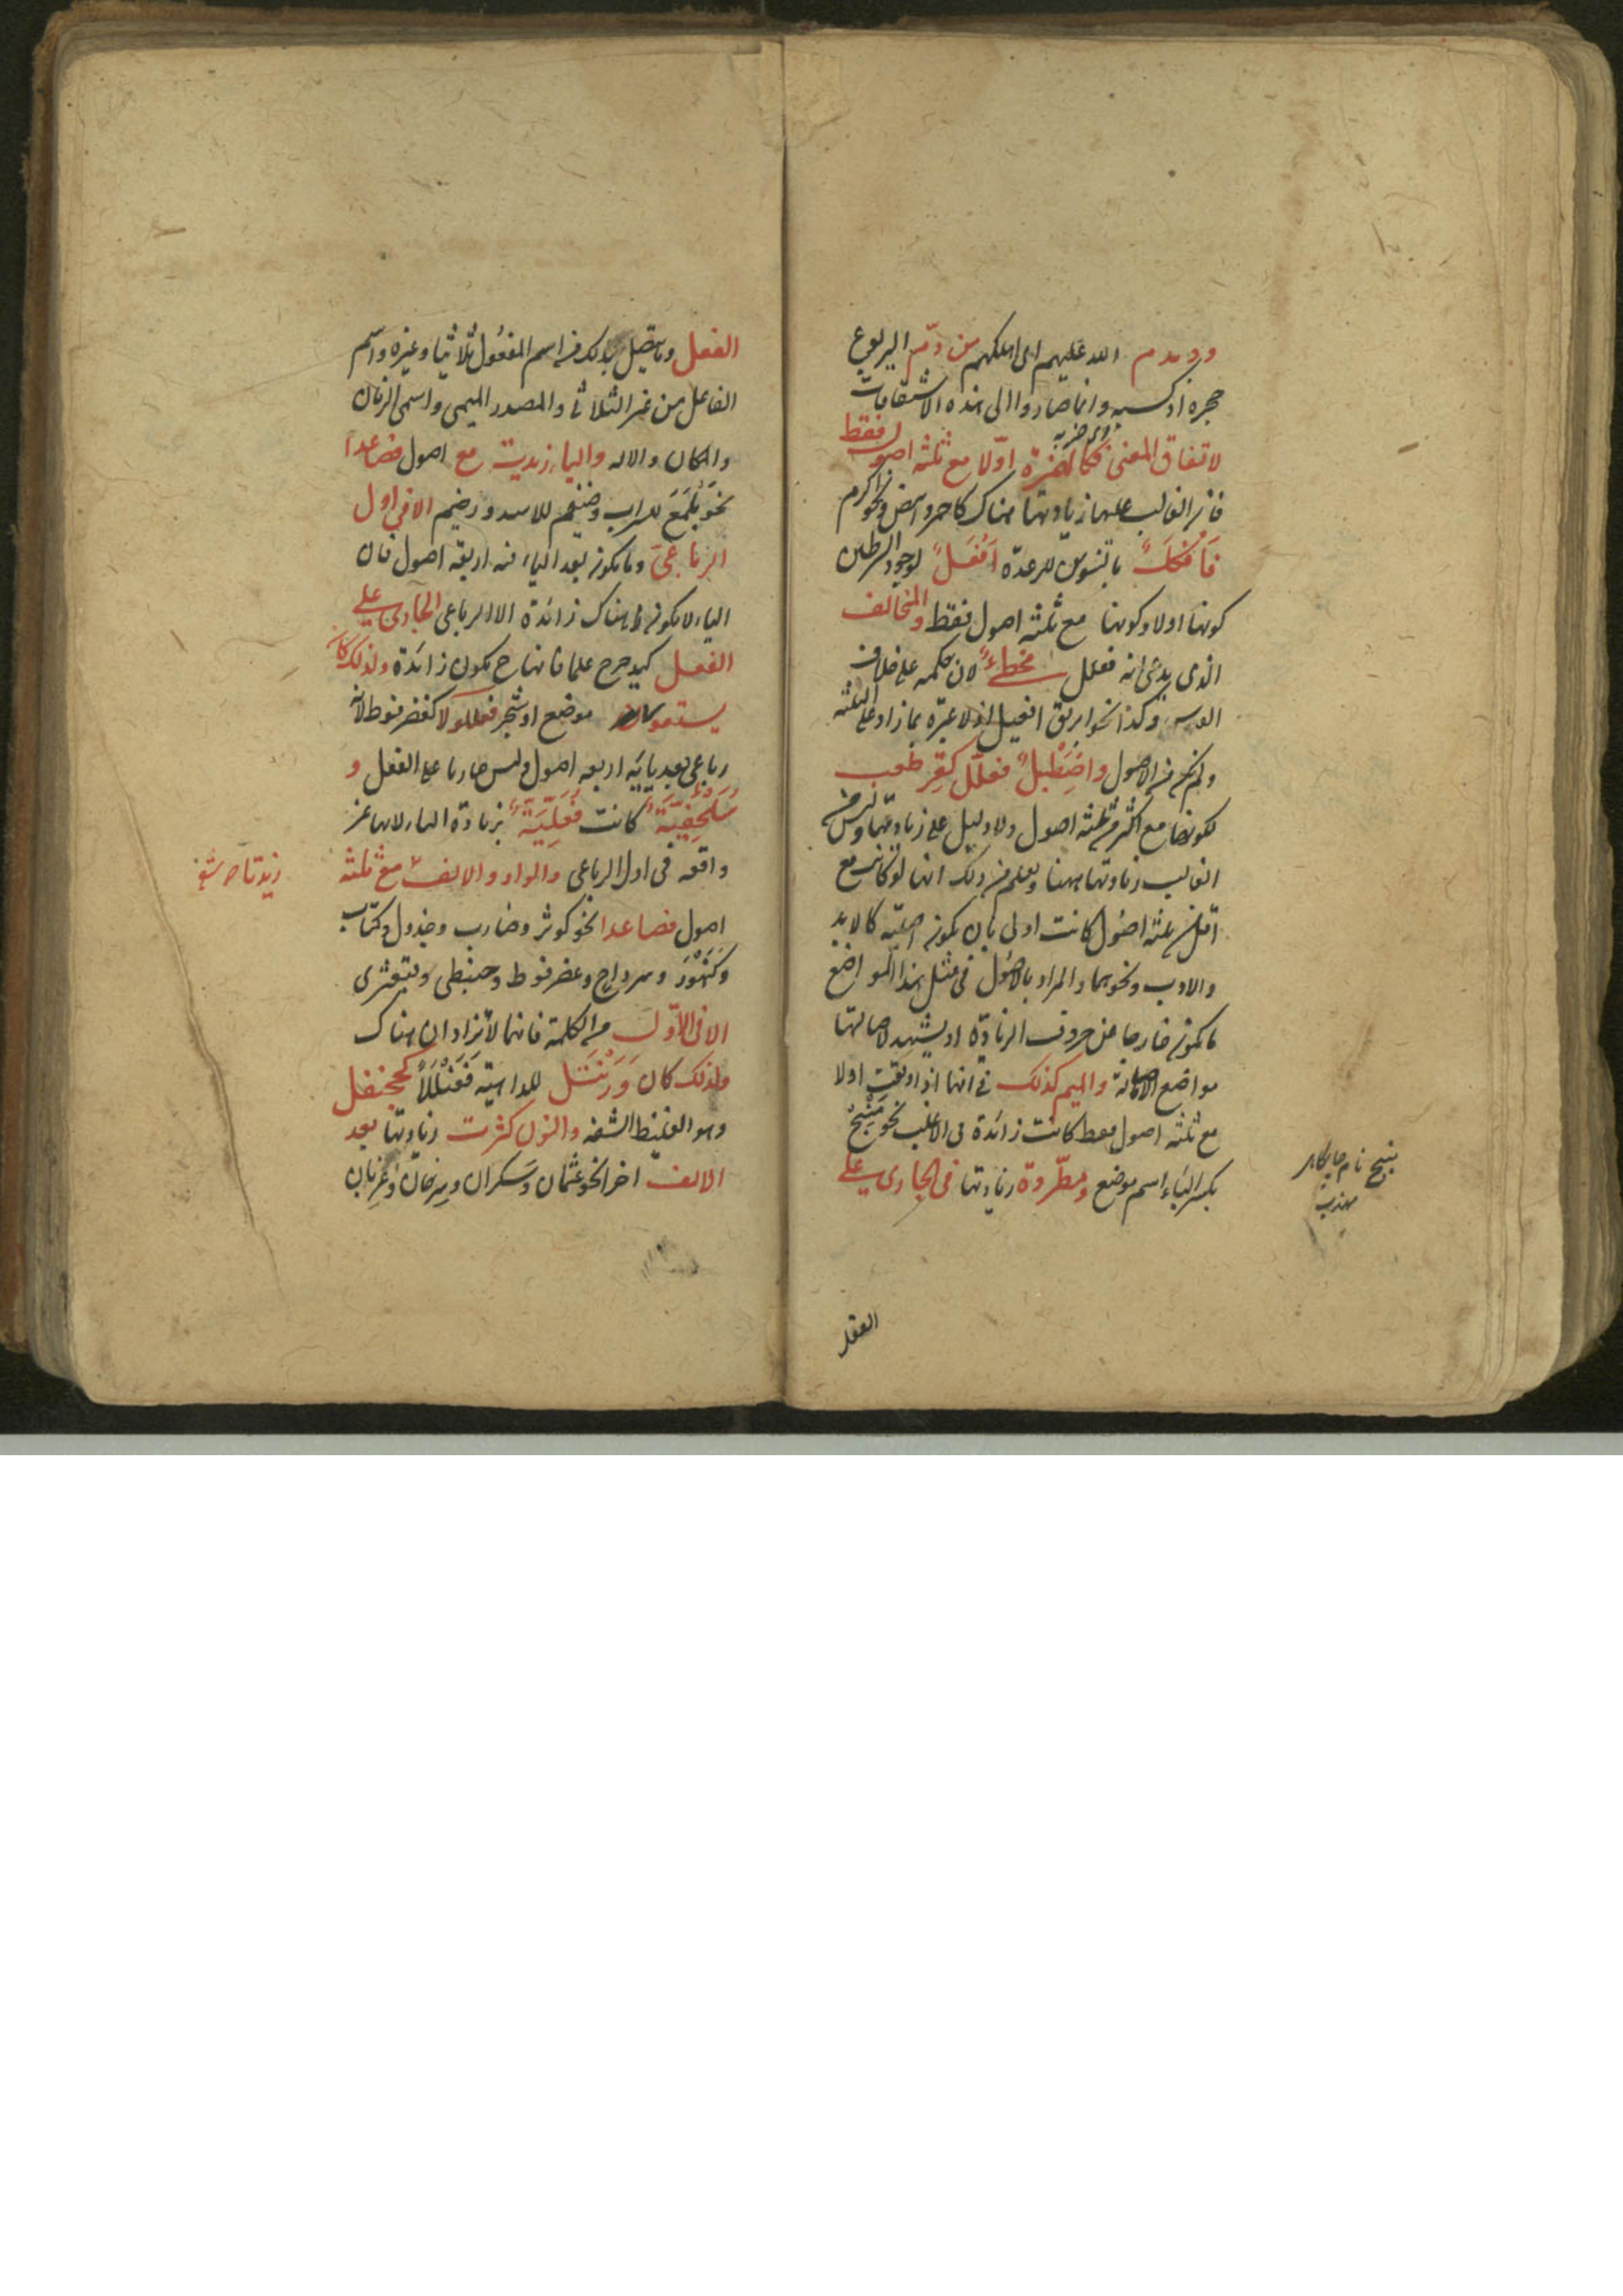 ودمدم الله عليهم اى اهلكهم من دمّ اليربوع
حجره اذا كبسه وانما صاروا الى هذه الاشتقاقات
لاتفاق المعنى فكالهمزة اوّلا مع ثلثة اصول فقط
فان الغالب عليها زيادتها هناك كاحمر وابيض ونحو اكرم
فَاَفْكَلٌ بالتنوين للرعدة اَفْعَلٌ لوجود الشرطين
كونها اولا وكونها مع ثلثة اصول فقط والمخالف
الذى يدعى انه فعلل مخطئ لان حكمه على خلاف
وكذا نحو ابريق افعيل اذ لا عبرة بما زاد على الثلثة
ولم يكن من الاصول واصْطَبْلٌ فِعْلَلٌّ كقِرْطَعْب
لكونها مع اكثر من ثلثة اصول ولا دليل على زيادتها وليس
الغالب زيادتها ههنا ويعلم من ذلك انها لو كانت مع
اقل من ثلثة اصول كانت اولى بان يكون اصلية كالابد
والادب ونحوهما والمراد بالاصول فى مثل هذا المواضع
ما يكون خارجا عن حروف الزيادة او يشهد لاصالتها
مواضع الاصالة والميم كذلك فى انها اذا وقعت اولا
مع ثلثة اصول فقط كانت زائدة فى الاغلب نحو مَنْبِج
بكسر الباء اسم موضع ومطّردة زيادتها فى الجارى على
منبج نام جايگاه
مهذب
الفعل
الفعل وما يتصل بذلك من اسم المفعول ثلاثيا وغيره واسم
الفاعل من غير الثلاثى والمصدر الميمى واسمى الزمان
والمكان والاله والياء زيدت مع اصول فصاعدا
نحو يَلْمَع للسراب وضيغم للاسد ورضيم الا فى اول
الرباعى وما يكون بعد الياء فيه اربعة اصول فان
الياء لا يكون هناك زائدة الا الرباعى الجارى على
الفعل كيدحرج علما فانها ح يكون زائدة ولذلك كان
يستعور موضع او شجر فعللولا كعضرفوط لانه
رباعى بعد يائه اربعه اصول وليس جاريا على الفعل و
سُلَحْفِيَةٌ كانت فُعَلِّيَةٌ بزيادة الياء لانها غير
واقعه فى اول الرباعى والواو والالف مع ثلثه
زيدتا صح
اصول فصاعدا نحو كوثر وضارب وجدول وكتاب
وكَنَهْوَر وسرداح وعضرفوط وحبنطى وقبعثرى
الا فى الاوّل من الكلمة فانهما لا تزادان هناك
ولذلك كان وَرَنْتَل للداهية فَعَنْلَلاً كجحنفل
وهو الغليظ الشفة والنون كثرت زيادتها بعد
الالف اخرا نحو عثمان وسَكران وسرحان وغربان